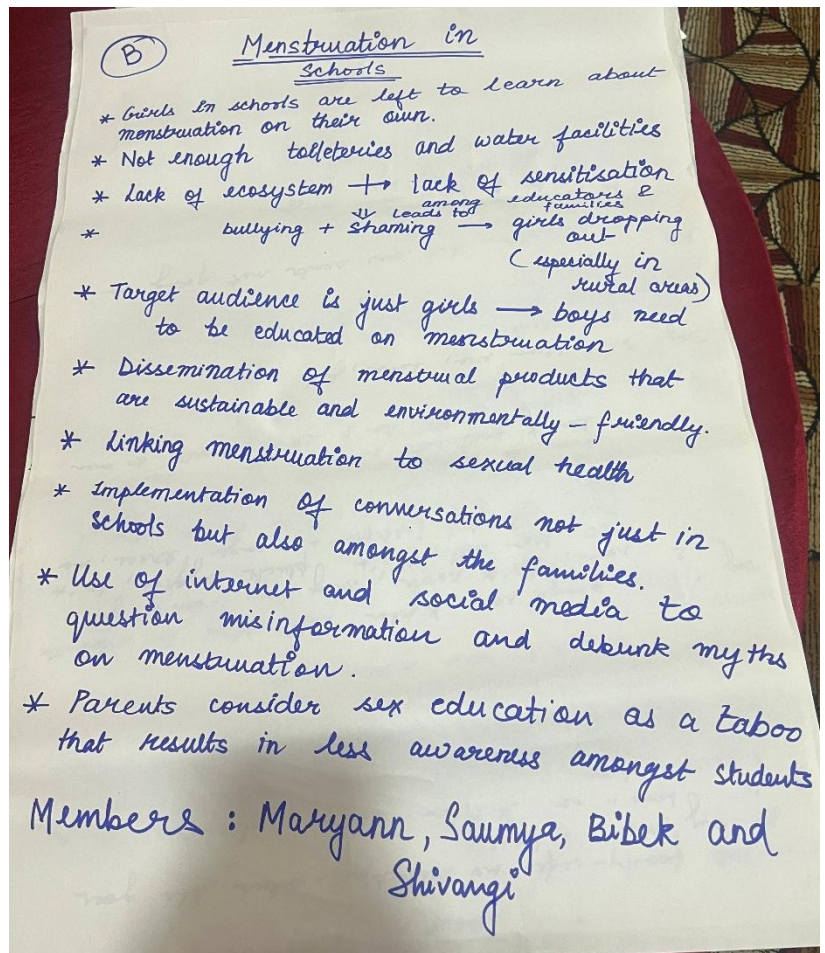 B
Menstruation in
Schools
* Girls in schools are left to learn about
menstruation on their own.
* Not enough tolleteries and water facilities
* Lack of ecosystem + lack of sensitisation
among educators & families
* bullying + shaming → girls dropping
⇓ leads to
out
(especially in
rural areas)
* Target audience is just girls → boys need
to be educated on menstruation
* Dissemination of menstrual products that
are sustainable and environmentally - friendly.
* Linking menstruation to sexual health
* Implementation of conversations not just in
schools but also amongst the families.
* Use of internet and social media to
question misinformation and debunk myths
on menstruation.
* Parents consider sex education as a taboo
that results in less awareness amongst students
Members : Maryann, Saumya, Bibek and
Shivangi